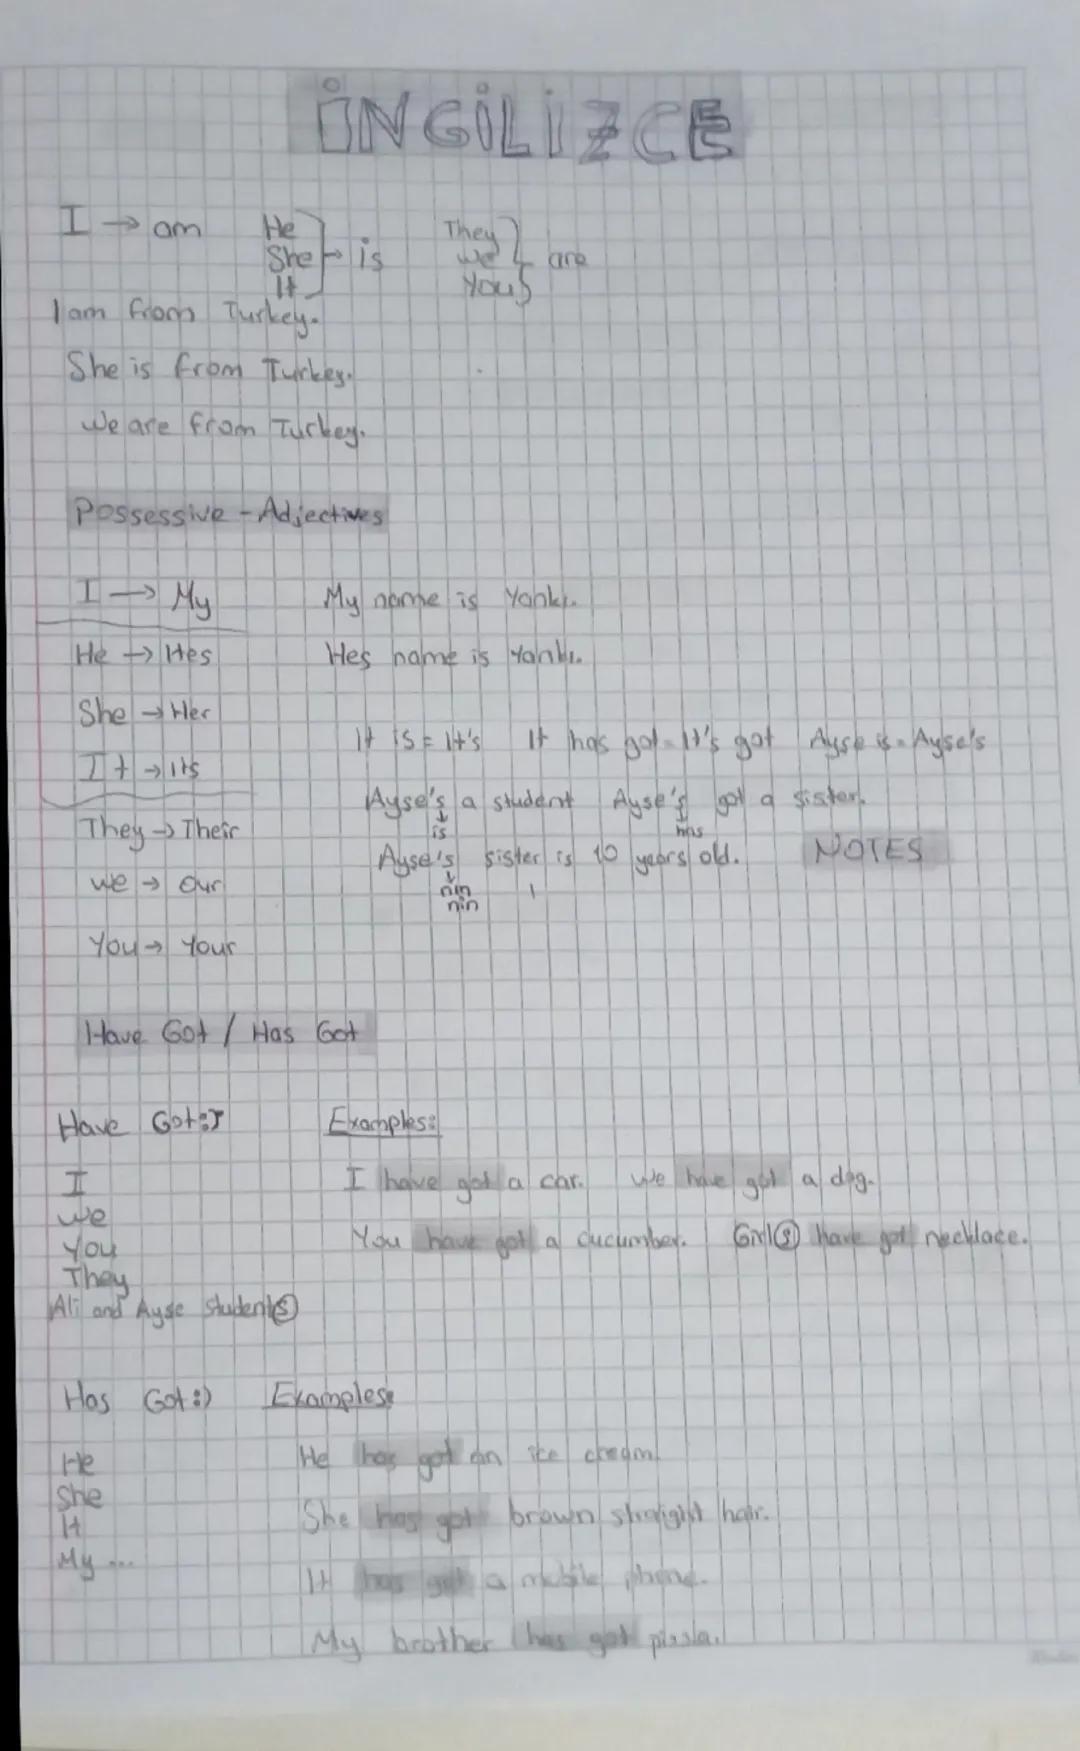 İNGİLİZCE
I → am He They
She → is we are
It You
I am from Turkey.
She is from Turkey.
We are from Turkey.
Possessive - Adjectives
I → My My name is Yankı.
He → Hes Hes name is Yankı.
She → Her
It is = It's It has got = It's got Ayşe is = Ayşe's
It → Its
Ayşe's a student Ayşe's got a sister.
They → Their is has
Ayşe's sister is 10 years old. NOTES
we → Our nın ı
nin
You → Your
Have Got / Has Got
Have Got:) Examples:
I I have got a car. we have got a dog.
we
You You have got a cucumber. Girl(s) have got necklace.
They
Ali and Ayşe student(s)
Has Got:) Examples:
He He has got an ice cream.
She
It She has got brown straight hair.
My ...
It has got a mobile phone.
My brother has got pizza.